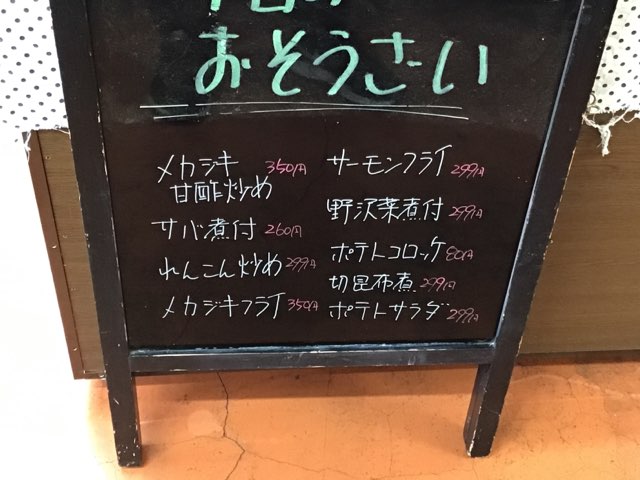 今日の
おそうざい
メカジキ 350円
甘酢炒め
サバ煮付 260円
れんこん炒め 299円
メカジキフライ 350円
サーモンフライ 299円
野沢菜煮付 299円
ポテトコロッケ 80円
切昆布煮 299円
ポテトサラダ 299円